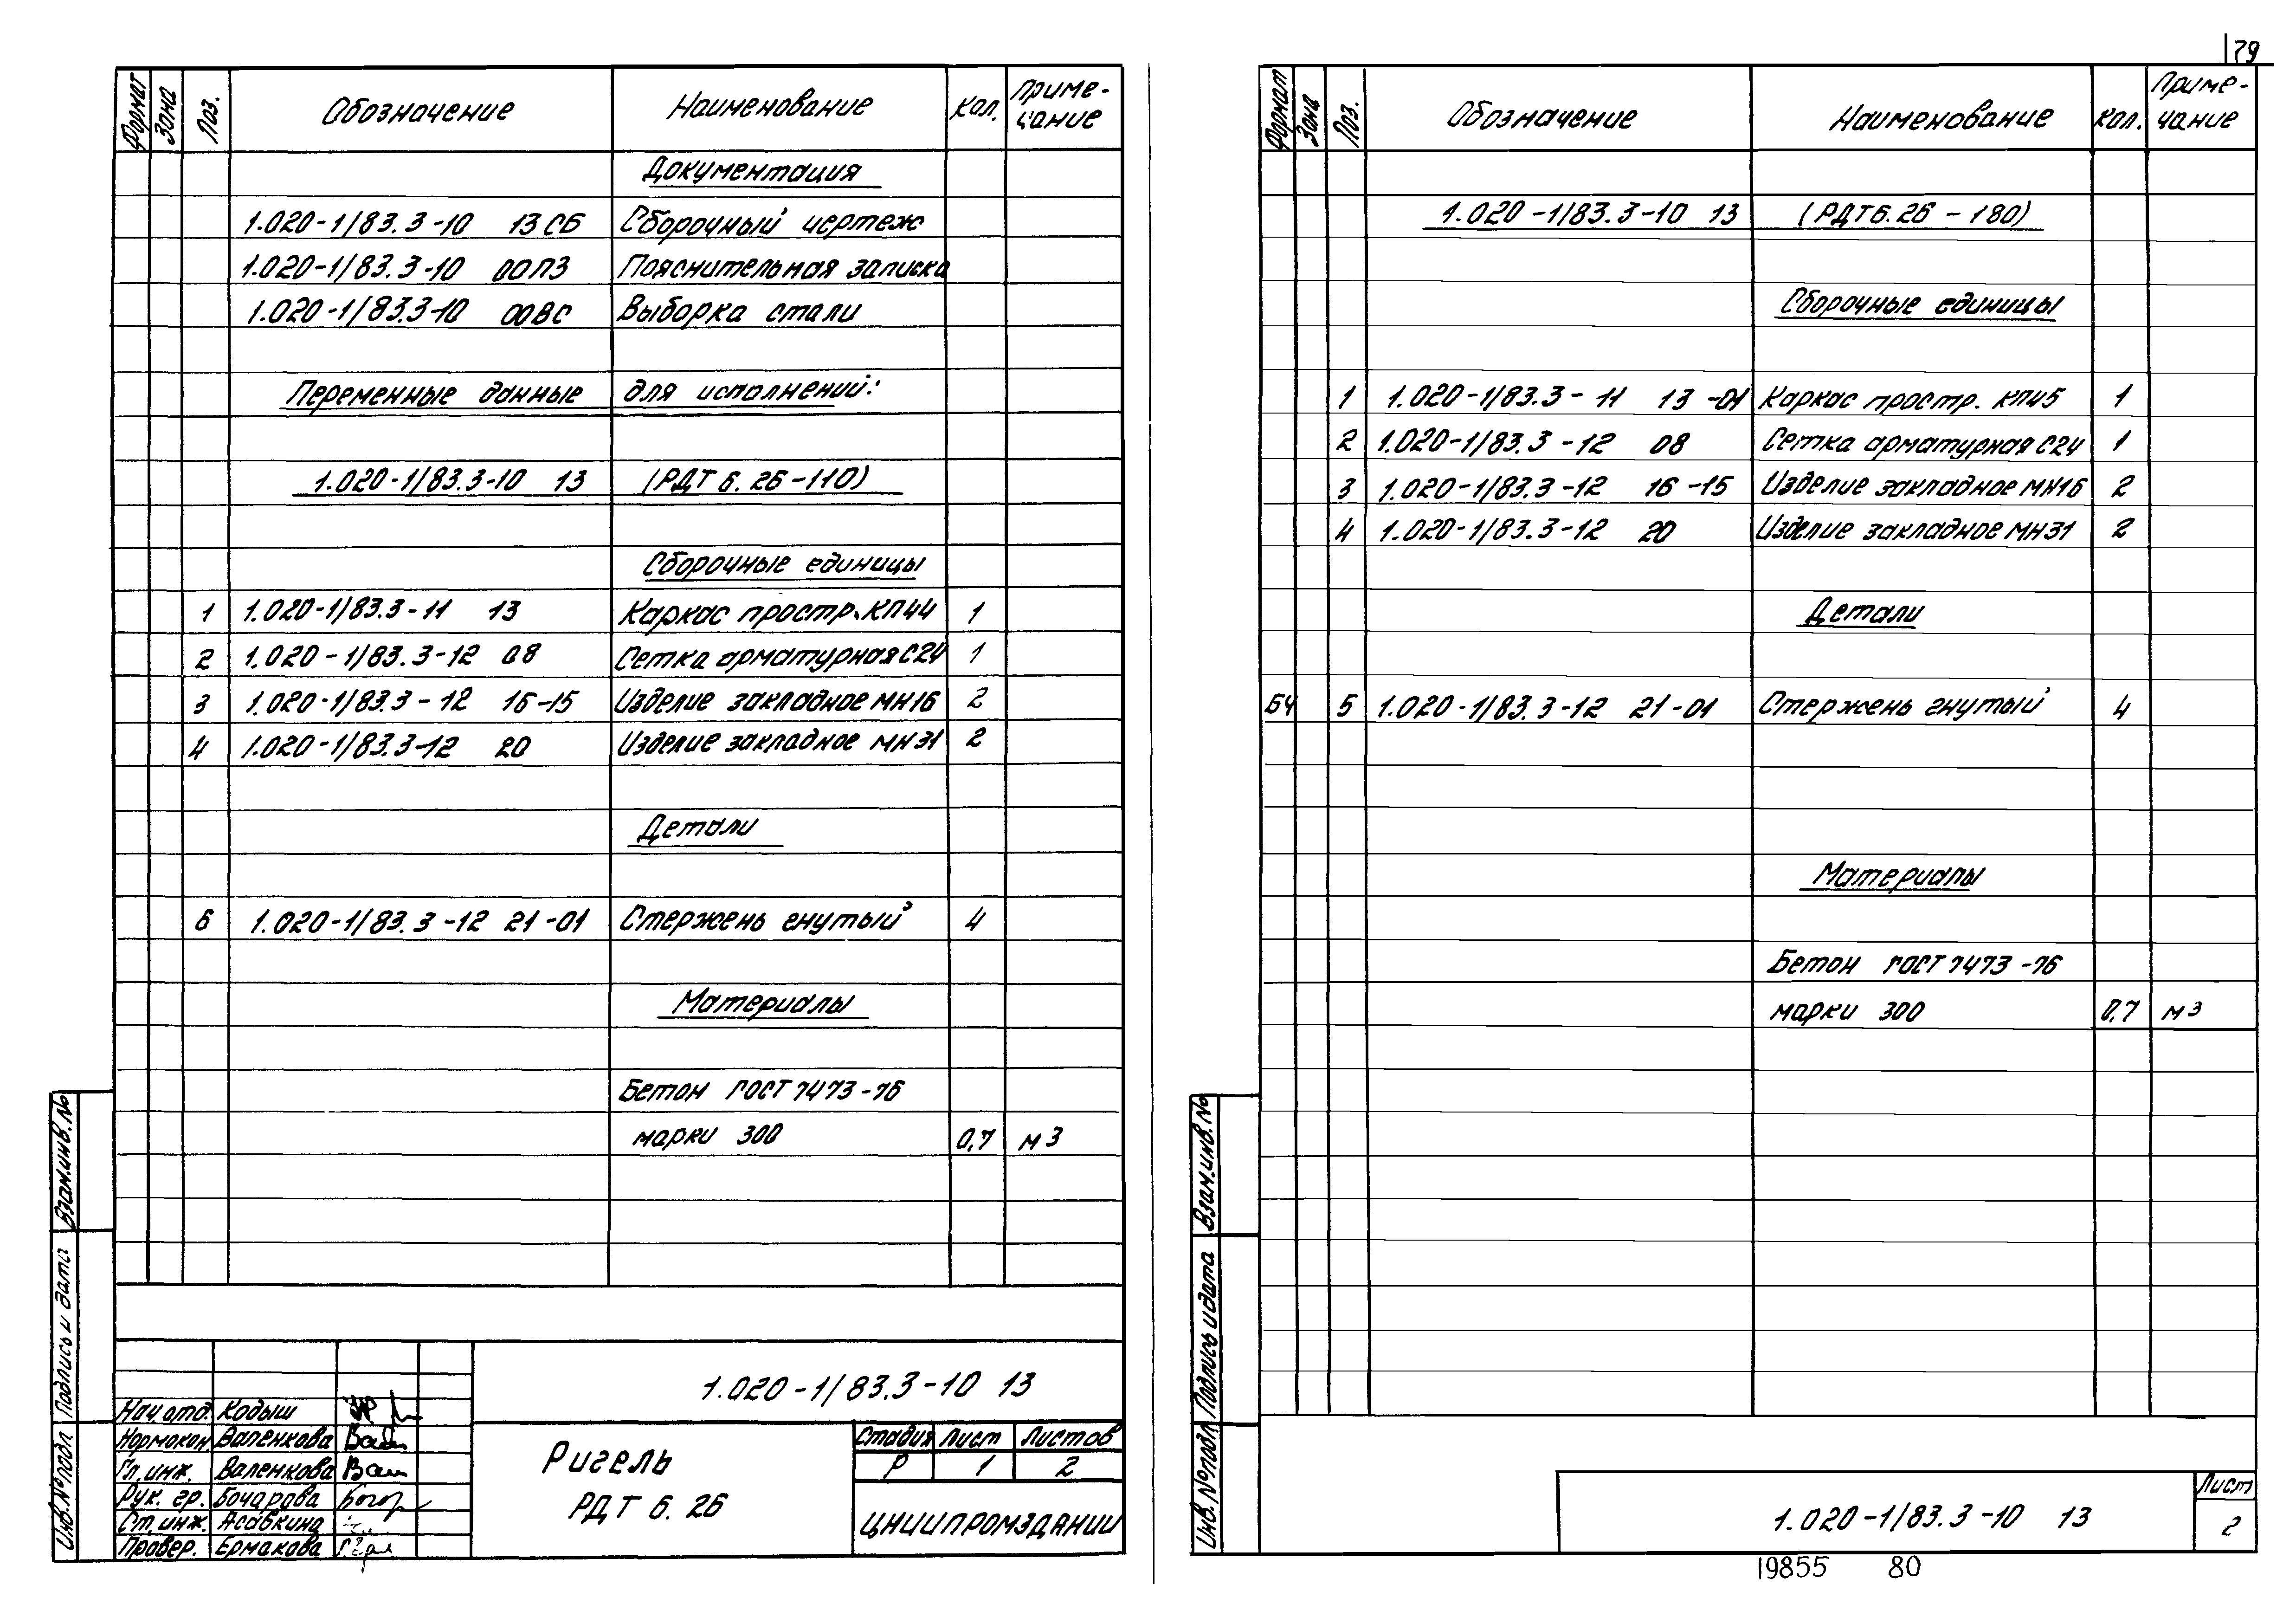 79
Формат Зона Поз. Обозначение Наименование Кол. Приме-
чание
Документация
1.020-1/83.3-10 13СБ Сборочный чертеж
1.020-1/83.3-10 00ПЗ Пояснительная записка
1.020-1/83.3-10 00ВС Выборка стали
Переменные данные для исполнений:
1.020-1/83.3-10 13 (РДТ 6.26-110)
Сборочные единицы
1 1.020-1/83.3-11 13 Каркас простр. КП44 1
2 1.020-1/83.3-12 08 Сетка арматурная С24 1
3 1.020-1/83.3-12 16-15 Изделие закладное МН16 2
4 1.020-1/83.3-12 20 Изделие закладное МН31 2
Детали
6 1.020-1/83.3-12 21-01 Стержень гнутый 4
Материалы
Бетон ГОСТ 7473-76
марки 300 0,7 м3
Взам.инв.№
Подпись и дата
Инв.№подл
1.020-1/83.3-10 13
Нач отд. Кодыш
Нормокон Валенкова
Гл.инж. Валенкова
Рук. гр. Бочарова
Ст.инж. Асавкина
Провер. Ермакова
Ригель
РДТ 6.26
Стадия Лист Листов
Р 1 2
ЦНИИПРОМЗДАНИИ
Формат Зона Поз. Обозначение Наименование Кол. Приме-
чание
1.020-1/83.3-10 13 (РДТ6.26-180)
Сборочные единицы
1 1.020-1/83.3-11 13-01 Каркас простр. КП45 1
2 1.020-1/83.3-12 08 Сетка арматурная С24 1
3 1.020-1/83.3-12 16-15 Изделие закладное МН16 2
4 1.020-1/83.3-12 20 Изделие закладное МН31 2
Детали
БЧ 5 1.020-1/83.3-12 21-01 Стержень гнутый 4
Материалы
Бетон ГОСТ 7473-76
марки 300 0,7 м3
Взам.инв.№
Подпись и дата
Инв.№подл
1.020-1/83.3-10 13
Лист
2
19855 80